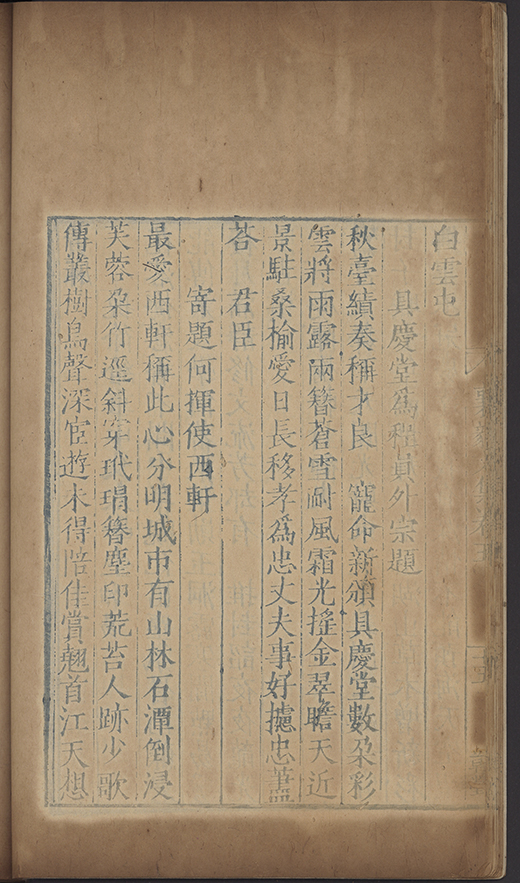 白雲屯
具慶堂爲程員外宗題
秋臺績奏稱才良寵命新頒具慶堂數朶彩
雲將雨露兩簪蒼雪耐風霜光搖金翠瞻天近
景駐桑榆愛日長移孝爲忠丈夫事好攄忠藎
荅君臣
寄題何揮使西軒
最愛西軒稱此心分明城市有山林石潭倒浸
芙蓉朶竹逕斜穿玳瑁簪塵印荒苔人跡少歌
傳叢樹鳥聲深宦遊未得陪佳賞翹首江天想